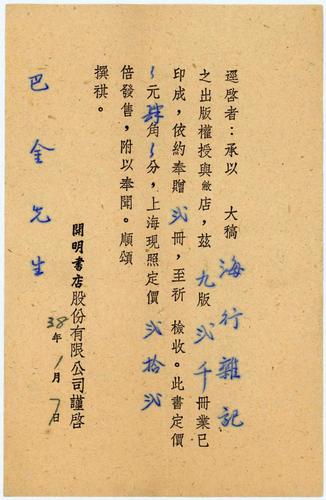 逕啓者：承以　大稿 海行雜記
之出版權授與敝店，茲 九 版 弍千 冊業已
印成，依約奉贈 弍 冊，至祈　檢收。此書定價
元 肆 角 分，上海現照定價 弍拾弍
倍發售，附以奉聞。順頌
撰祺。
開明書店股份有限公司謹啓
38年1月7日
巴金先生